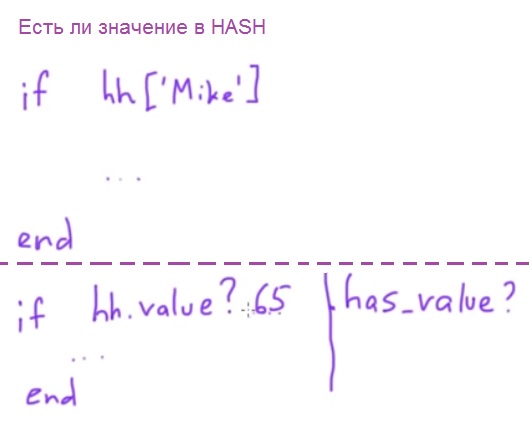 Есть ли значение в HASH
if hh['Mike']
...
end
if hh.value? 65 | has_value?
...
end